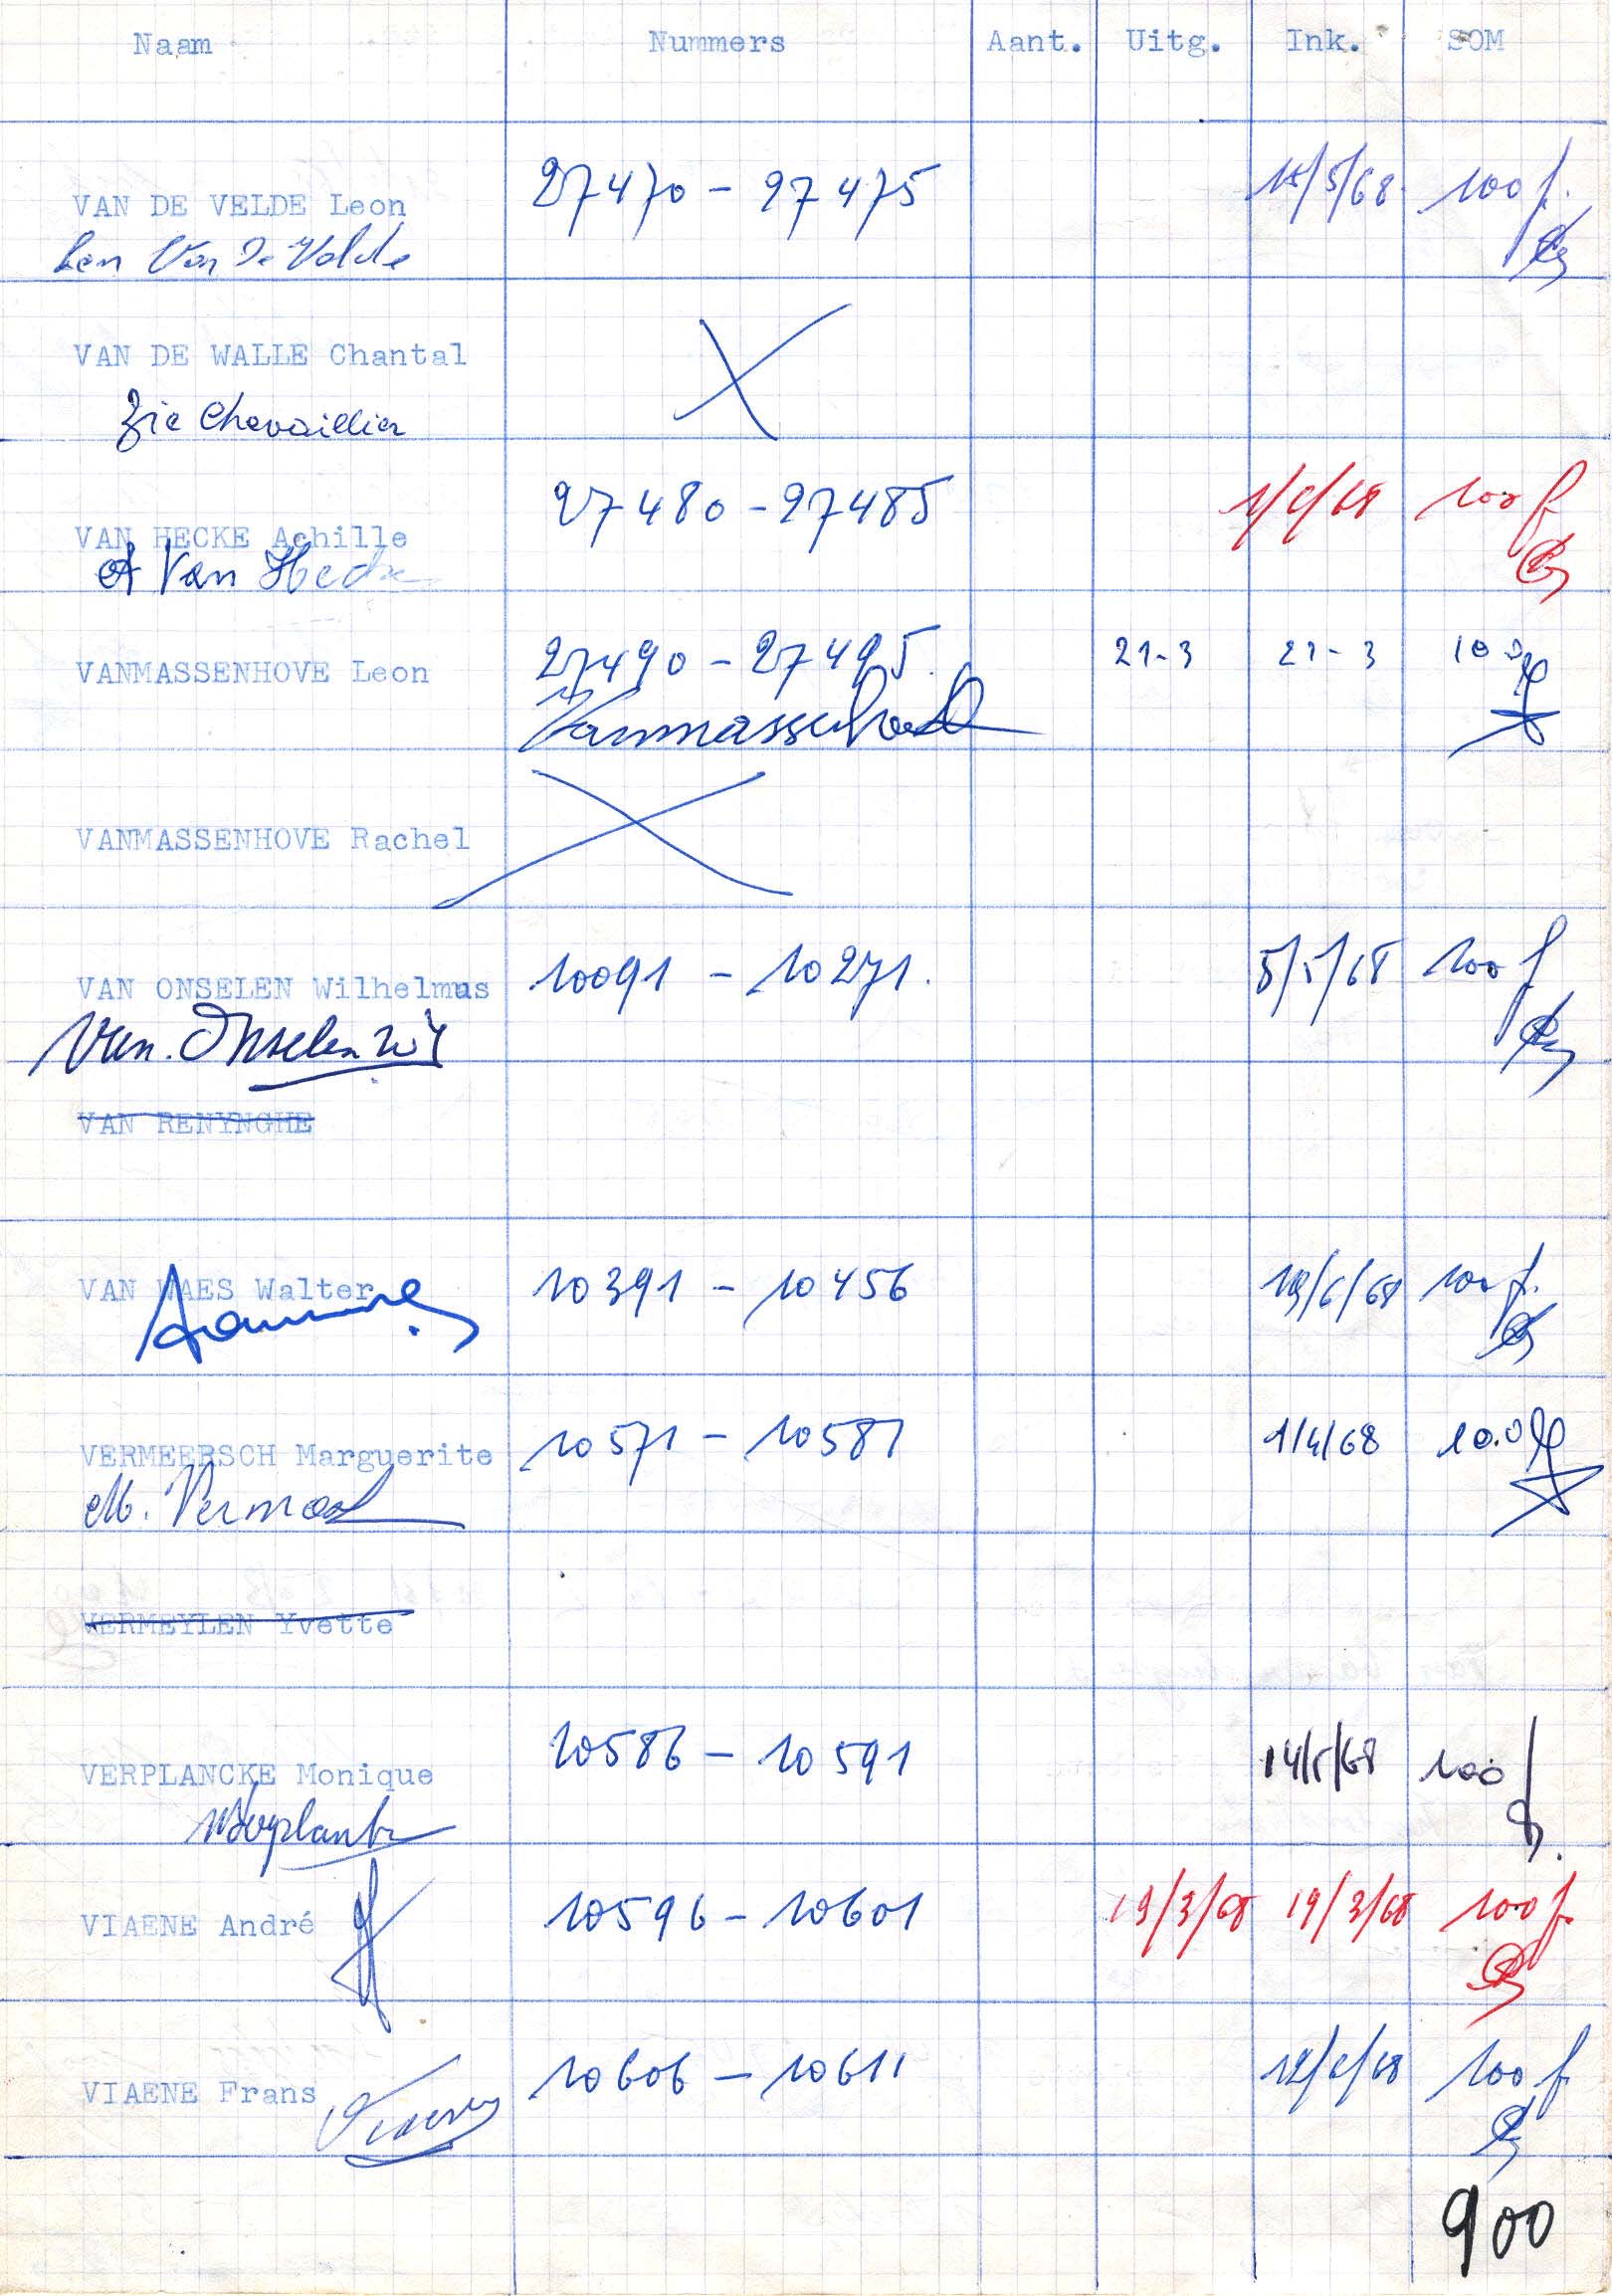 Naam Nummers Aant. Uitg. Ink. SOM
27470 - 27475 18/5/68 100 f.
VAN DE VELDE Leon
Leon Van De Velde
VAN DE WALLE Chantal
Zie Chevaillier
27480 - 27485 100 f
VAN HECKE Achille
A Van Hecke
27490 - 27495. 21-3 21-3 100
VANMASSENHOVE Leon
Vanmassenhove
VANMASSENHOVE Rachel
10091 - 10271. 5/5/68 100 f
VAN ONSELEN Wilhelmus
Van. Onselen
VAN RENYNGHE
VAN WAES Walter 10391 - 10456 19/6/68 100 f.
10571 - 10581 1/4/68 100
VERMEERSCH Marguerite
M. Vermeersch
VERMEYLEN Yvette
10586 - 10591 14/5/68 100 f
VERPLANCKE Monique
MVerplancke
VIAENE André 10596 - 10601 19/3/68 19/3/68 100 f.
VIAENE Frans 10606 - 10611 100 f
Viaene
900